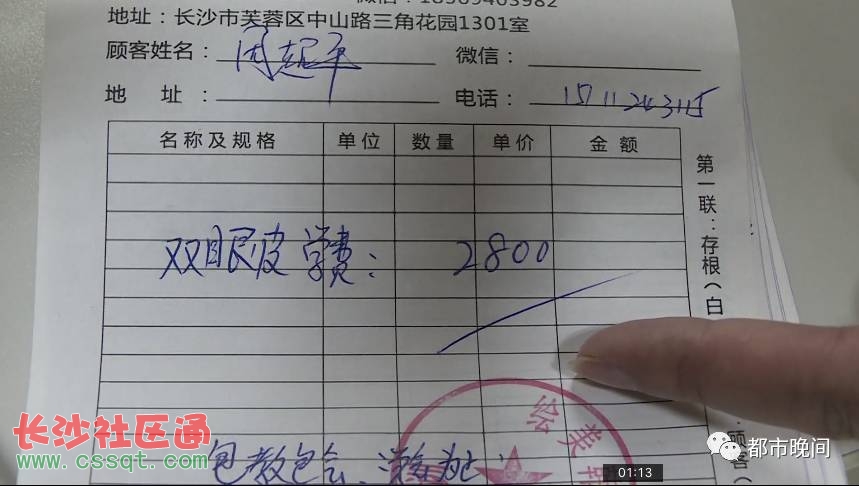 地址：长沙市芙蓉区中山路三角花园1301室
顾客姓名：周超平 微信：
地 址： 电话：
名称及规格 单位 数量 单价 金额
双眼皮学费： 2800
包教包会、
绘美
第一联：存根（白
顾客（
长沙社区通
www.cssqt.com
都市晚间
01:13